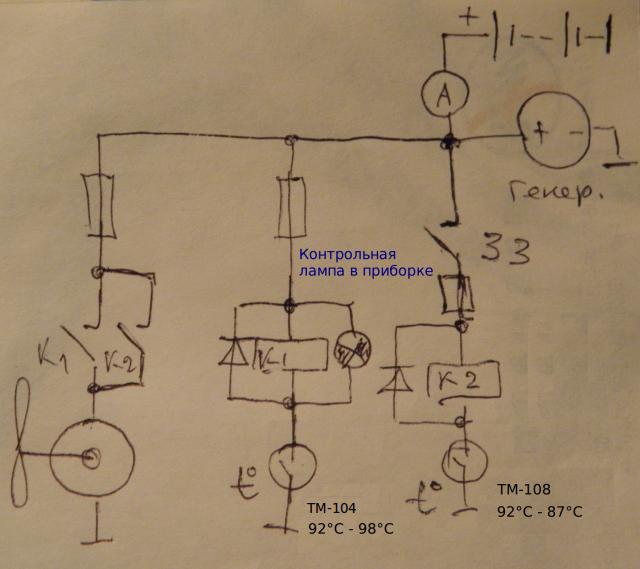 +
A
+ -
Генер.
ЗЗ
Контрольная
лампа в приборке
K1 K2
K-1
K2
t°
t°
ТМ-104
92°C - 98°C
ТМ-108
92°C - 87°C